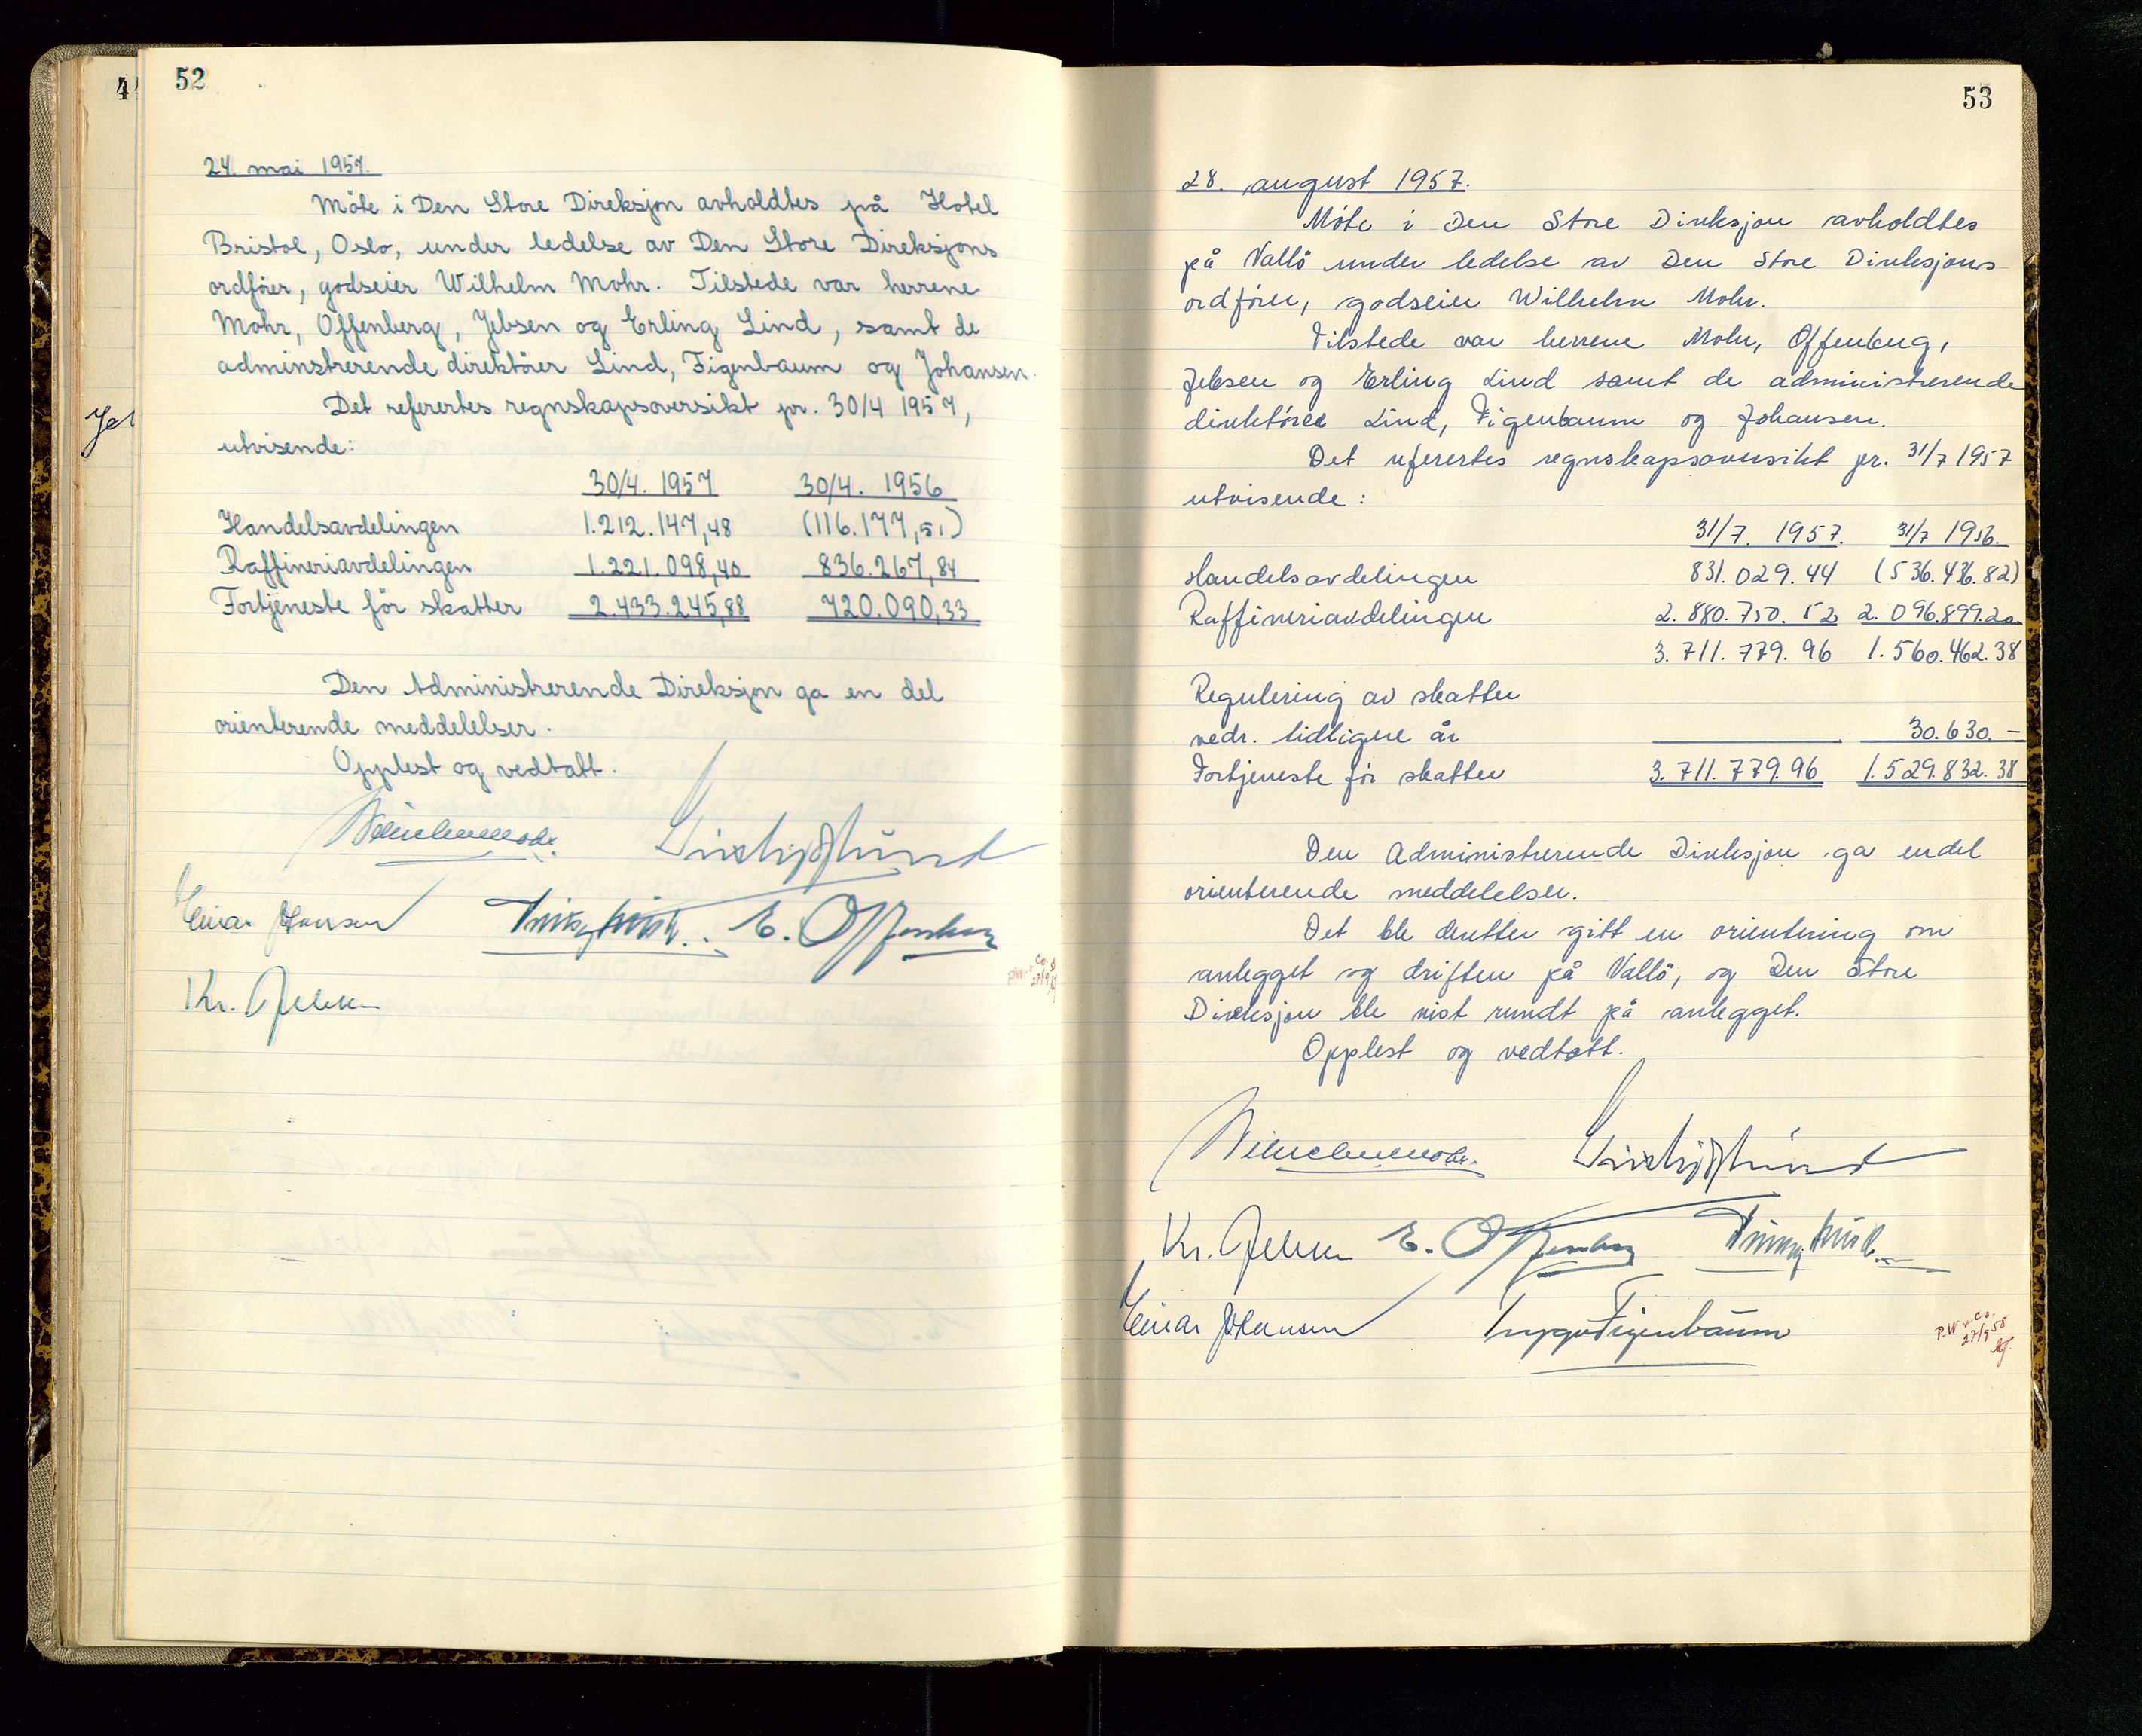 52
24. mai 1957.
Møte i Den Store Direksjon avholdtes på Hotel
Bristol, Oslo, under ledelse av Den Store Direksjons
ordfører, godseier Wilhelm Mohr. Tilstede var herrene
Mohr, Offenberg, Jebsen og Erling Lind, samt de
adminstrerende direktører Lind, Figenbaum og Johansen.
Det referertes regnskapsoversikt pr. 30/4 1957,
utvisende:
30/4. 1957 30/4. 1956
Handelsavdelingen 1.212.147,48 (116.177,51)
Raffineriavdelingen 1.221.098,40 836.267,84
Fortjeneste før skatter 2.433.245,88 720.090,33
Den Administrerende Direksjon ga en del
orienterende meddelelser.
Opplest og vedtatt.
Einar Johansen E. Offenberg
Kr. Jebsen
53
28. august 1957.
Møte i Den Store Direksjon avholdtes
på Vallö under ledelse av Den Store Direksjons
ordfører, godseier Wilhelm Mohr.
Tilstede var herrene Mohr, Offenberg,
Jebsen og Erling Lind samt de administrerende
direktører Lind, Figenbaum og Johansen.
Det referertes regnskapsoversikt pr. 31/7 1957
utvisende:
31/7. 1957. 31/7 1956.
Handelsavdelingen 831.029.44 (536.436.82)
Raffineriavdelingen 2.880.750.52 2.096.899.20
3.711.779.96 1.560.462.38
Regulering av skatter
vedr. tidligere år 30.630.-
Fortjeneste før skatter 3.711.779.96 1.529.832.38
Den Administrerende Direksjon ga endel
orienterende meddelelser.
Det ble deretter gitt en orientering om
anlegget og driften på Vallö, og Den Store
Direksjon ble vist rundt på anlegget.
Opplest og vedtatt.
Kr. Jebsen E. Offenberg
Einar Johansen Trygve Figenbaum
P.W. & Co.
27/9 58